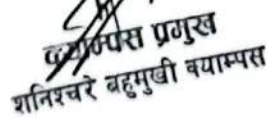 क्याम्पस प्रमुख
शनिश्चरे बहुमुखी क्याम्पस